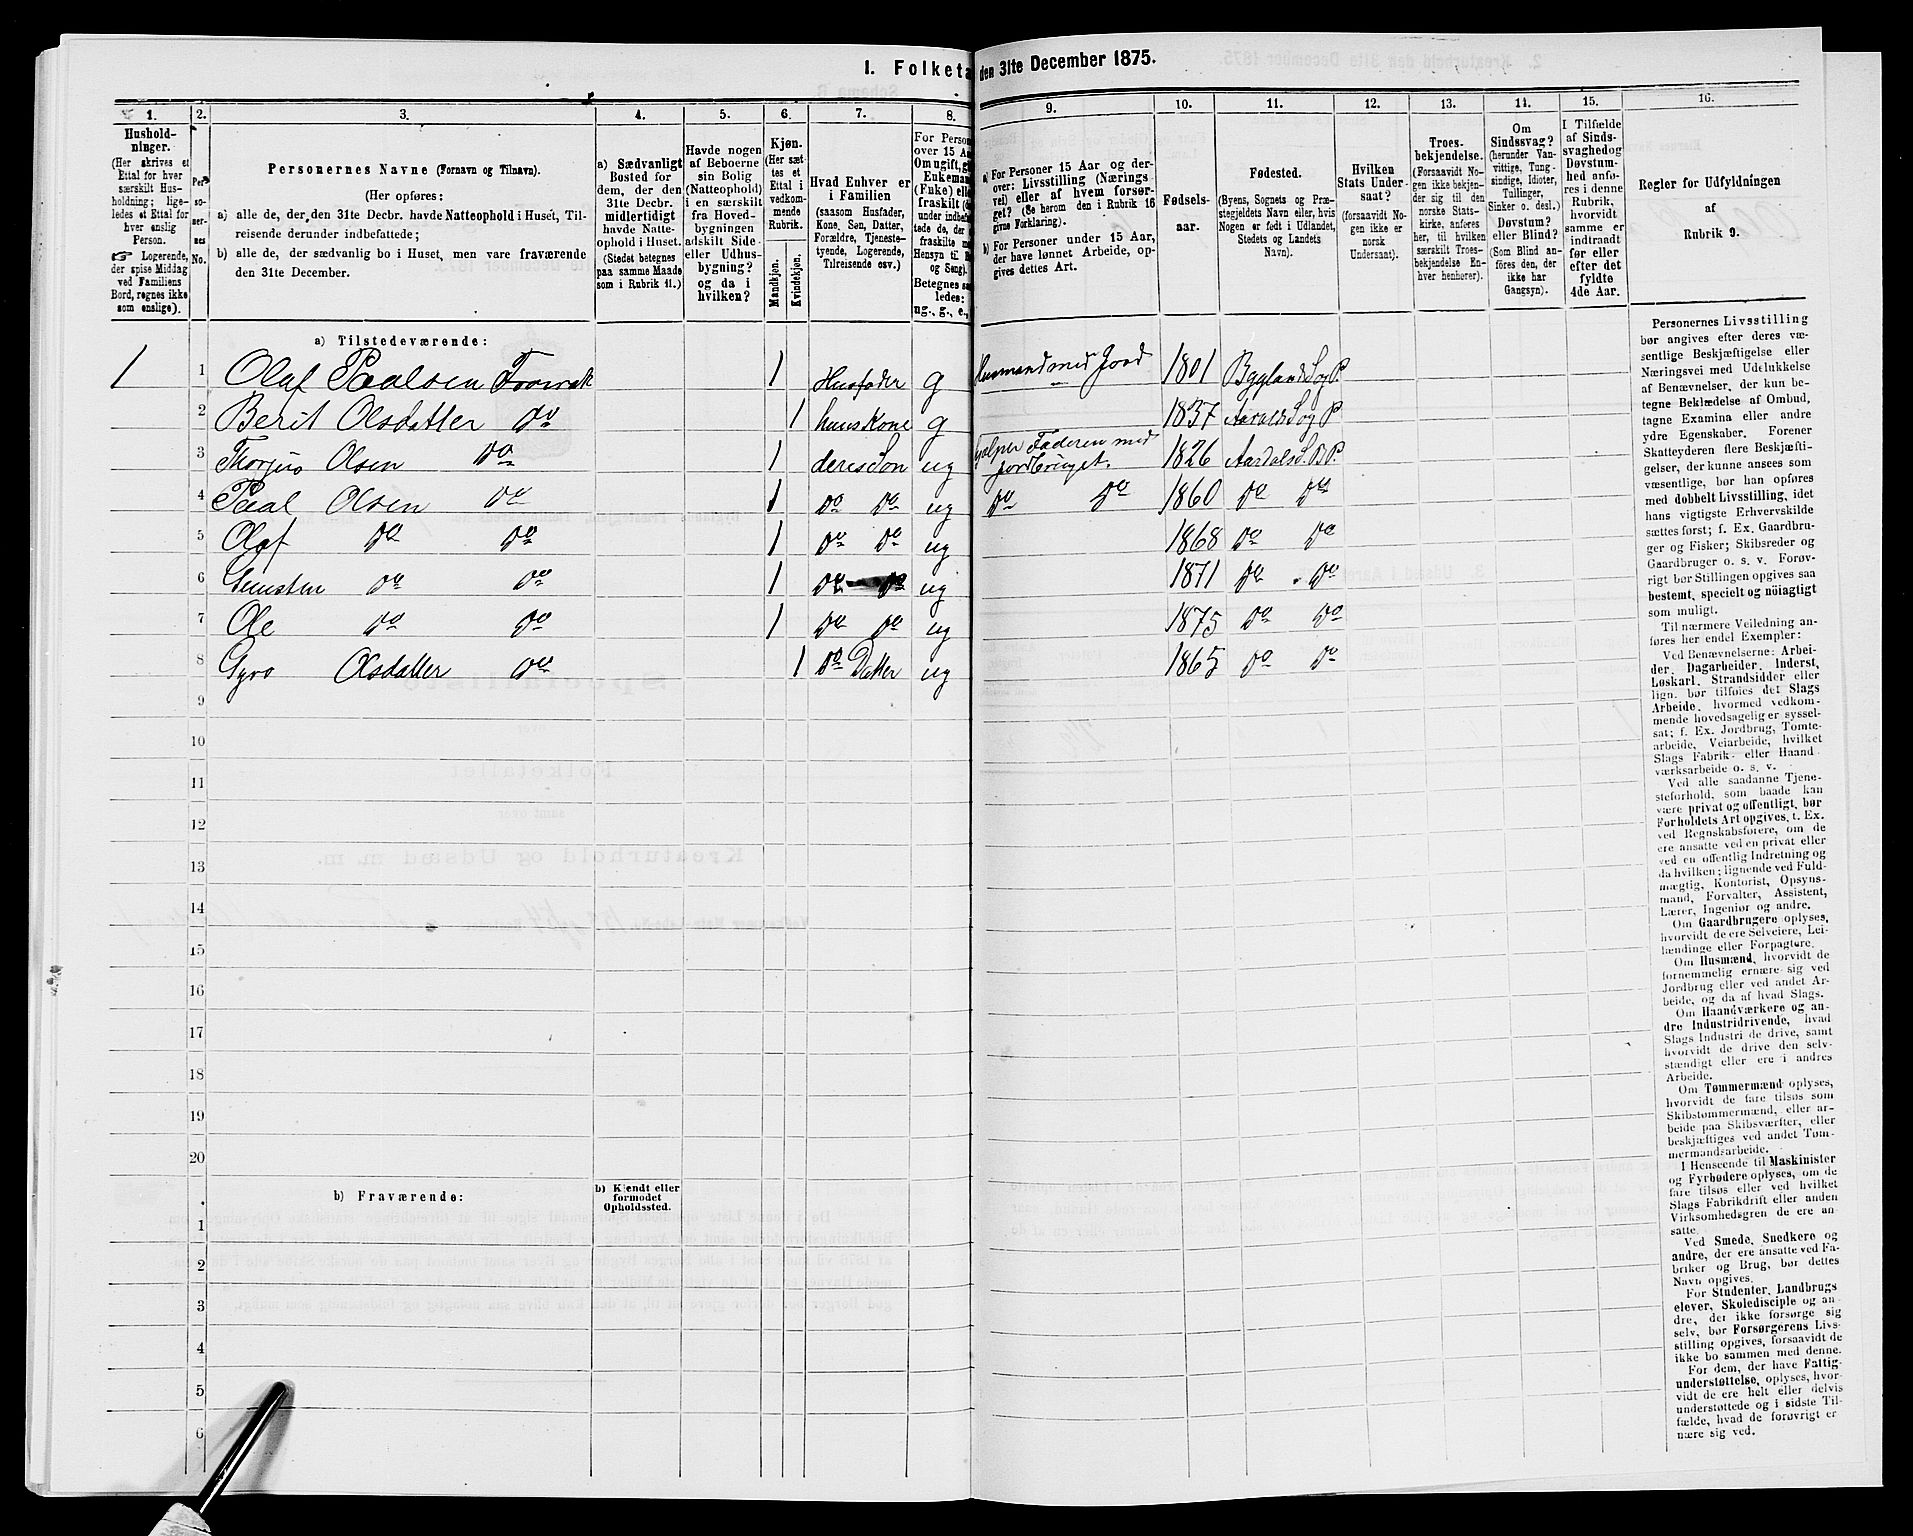 1. Folketa
den 31te December 1875.
1. 2. 3. 4. 5. 6. 7. 8. 9. 10. 11. 12. 13. 14. 15. 16.
Hushold-
ninger.
(Her skrives et
Ettal for hver
særskilt Hus-
holdning; lige-
ledes et Ettal for
hver enslig
Person.
☞ Logerende,
der spise Middag
ved Familiens
Bord, regnes ikke
som enslige).
Per-
so-
ner-
nes
No.
Personernes Navne (Fornavn og Tilnavn).
(Her opføres:
a) alle de, der den 31te Decbr. havde Natteophold i Huset, Til-
reisende derunder indbefattede;
b) alle de, der sædvanlig bo i Huset, men vare fraværende
den 31te December.
a) Sædvanligt
Bosted for
dem, der den
31te Decbr.
midlertidigt
havde Natte-
ophold i Huset.
(Stedet betegnes
paa samme Maade
som i Rubrik 11.)
Havde nogen
af Beboerne
sin Bolig
(Natteophold)
i en særskilt
fra Hoved-
bygningen
adskilt Side-
eller Udhus-
bygning?
og da i
hvilken?
Kjøn.
(Her sæt-
tes et
Ettal i
vedkom-
mende
Rubrik.
Mandkjøn.
Kvindekjøn.
Hvad Enhver er
i Familien
(saasom Husfader,
Kone, Søn, Datter,
Forældre, Tjeneste-
tyende, Logerende,
Tilreisende osv.)
For Person
over 15 Aa
Om ugift, gi
Enkeman
(Fuke) elle
fraskilt (d
under indbef
tede de,
fraskilte m
Hensyn til B
og Seng).
Betegnes sa
ledes:
ug., g., e.,
a) For Personer 15 Aar og der-
over: Livsstilling (Nærings-
vei) eller af hvem forsør-
get? (Se herom den i Rubrik 16
givne Forklaring).
b) For Personer under 15 Aar,
der have lønnet Arbeide, op-
gives dettes Art.
Fødsels-
aar.
Fødested.
(Byens, Sognets og Præ-
stegjeldets Navn eller, hvis
Nogen er født i Udlandet,
Stedets og Landets
Navn).
Hvilken
Stats Under-
saat?
(forsaavidt No-
gen ikke er
norsk
Undersaat).
Troes-
bekjendelse.
(Forsaavidt No-
gen ikke bekjen-
der sig til den
norske Stats-
kirke, anføres
her, til hvilken
særskilt Troes-
bekjendelse En-
hver henhører).
Om
Sindssvag?
(herunder Van-
vittige, Tung-
sindige, Idioter,
Tullinger,
Sinker o. desl.)
Døvstum?
eller Blind?
(Som Blind an-
føres den, der
ikke har
Gangsyn).
I Tilfælde
af Sinds-
svaghed og
Døvstum-
hed anfø-
res i denne
Rubrik,
hvorvidt
samme er
indtraadt
før eller
efter det
fyldte
4de Aar.
Regler for Udfyldningen
af
Rubrik 9.
a) Tilstedeværende:
1 1 Olaf Paalsen 1 Husfader g Husmand med Jord 1801 Bygland S og P.
2 Berit Olsdatter Do 1 hans Kone g 1837 Aarals S og P
3 Olsen Do 1 deres Søn ug Hjelper Faderen med jordbruget. 1826 Aardals S. B P.
4 Paal Olsen Do 1 Do Do ug Do Do 1860 Do Do
5 Olaf Do Do 1 Do Do ug 1868 Do Do
6 Gunsten Do Do 1 Do Do ug 1871 Do Do
7 Ole Do Do 1 Do Do ug 1875 Do Do
8 Gyro Olsdatter Do 1 Do Datter ug 1865 Do Do
9
10
11
12
13
14
15
16
17
18
19
20
b) Fraværende:
b) Kjendt eller
formodet
Opholdssted.
1
2
3
4
5
6
Personernes Livsstilling
bør angives efter deres væ-
sentlige Beskjæftigelse eller
Næringsvei med Udelukkelse
af Benævnelser, der kun be-
tegne Beklædelse af Ombud,
tagne Examina eller andre
ydre Egenskaber. Forener
Skatteyderen flere Beskjæfti-
gelser, der kunne ansees som
væsentlige, bør han opføres
med dobbelt Livsstilling, idet
hans vigtigste Erhvervskilde
sættes først; f. Ex. Gaardbru-
ger og Fisker; Skibsreder og
Gaardbruger o. s. v. Forøv-
rigt bør Stillingen opgives saa
bestemt, specielt og nöiagtigt
som muligt.
Til nærmere Veiledning an-
føres her endel Exempler:
Ved Benævnelserne: Arbei-
der, Dagarbeider, Inderst,
Løskarl, Strandsidder eller
lign. bør tilføies det Slags
Arbeide, hvormed vedkom-
mende hovedsagelig er syssel-
sat; f. Ex. Jordbrug, Tomte-
arbeide, Veiarbeide, hvilket
Slags Fabrik- eller Haand-
værksarbeide o. s. v.
Ved alle saadanne Tjene-
steforhold, som baade kan
være privat og offentligt, bør
Forholdets Art opgives, t. Ex.
ved Regnskabsførere, om de
ere ansatte ved en privat eller
ved en offentlig Indretning og
da hvilken; lignende ved Fuld-
mægtig, Kontorist, Opsyns-
mand, Forvalter, Assistent,
Lærer, Ingeniør og andre.
Om Gaardbrugere oplyses,
hvorvidt de ere Selveiere, Lei-
lændinge eller Forpagtere.
Om Husmænd, hvorvidt de
fornemmelig ernære sig ved
Jordbrug eller ved andet Ar-
beide, og da af hvad Slags.
Om Haandværkere og an-
dre Industridrivende, hvad
Slags Industri de drive, samt
hvorvidt de drive den selv-
stændigt eller ere i andres
Arbeide.
Om Tømmermænd oplyses,
hvorvidt de fare tilsøs som
Skibstømmermænd, eller ar-
beide paa Skibsværfter, eller
beskjæftiges ved andet Tøm-
mermandsarbeide.
I Henseende til Maskinister
og Fyrbødere oplyses, om de
fare tilsøs eller ved hvilket
Slags Fabrikdrift eller anden
Virksomhedsgren de ere an-
satte.
Ved Smede, Snedkere og
andre, der ere ansatte ved Fa-
briker og Brug, bør dettes
Navn opgives.
For Studenter, Landbrugs-
elever, Skoledisciple og an-
dre, der ikke forsørge sig
selv, bør Forsørgerens Livs-
stilling opgives, forsaavidt de
ikke bo sammen med denne.
For dem, der have Fattig-
understøttelse, oplyses, hvor-
vidt de ere helt eller delvis
understøttede og i sidste Til-
fælde, hvad de forøvrigt er-
nære sig ved.